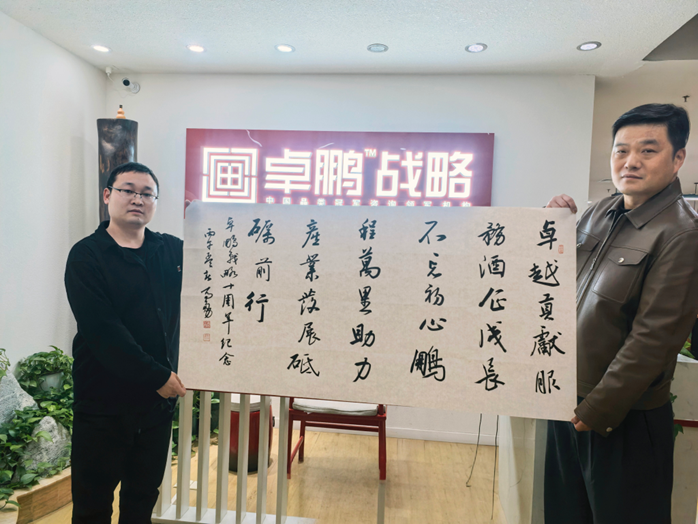 卓鹏™战略
卓越貢獻服
務酒企成長
不忘初心鵬
程萬里助力
產業發展砥
礪前行
卓鵬戰略十周年紀念
丙午